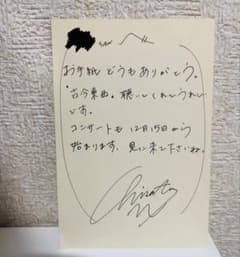 へ
お手紙どうもありがとう。
"古今東西"聴いてくれてうれしい
です。
コンサートも12月15日から
始まります。見に来て下さいね。
Chisato